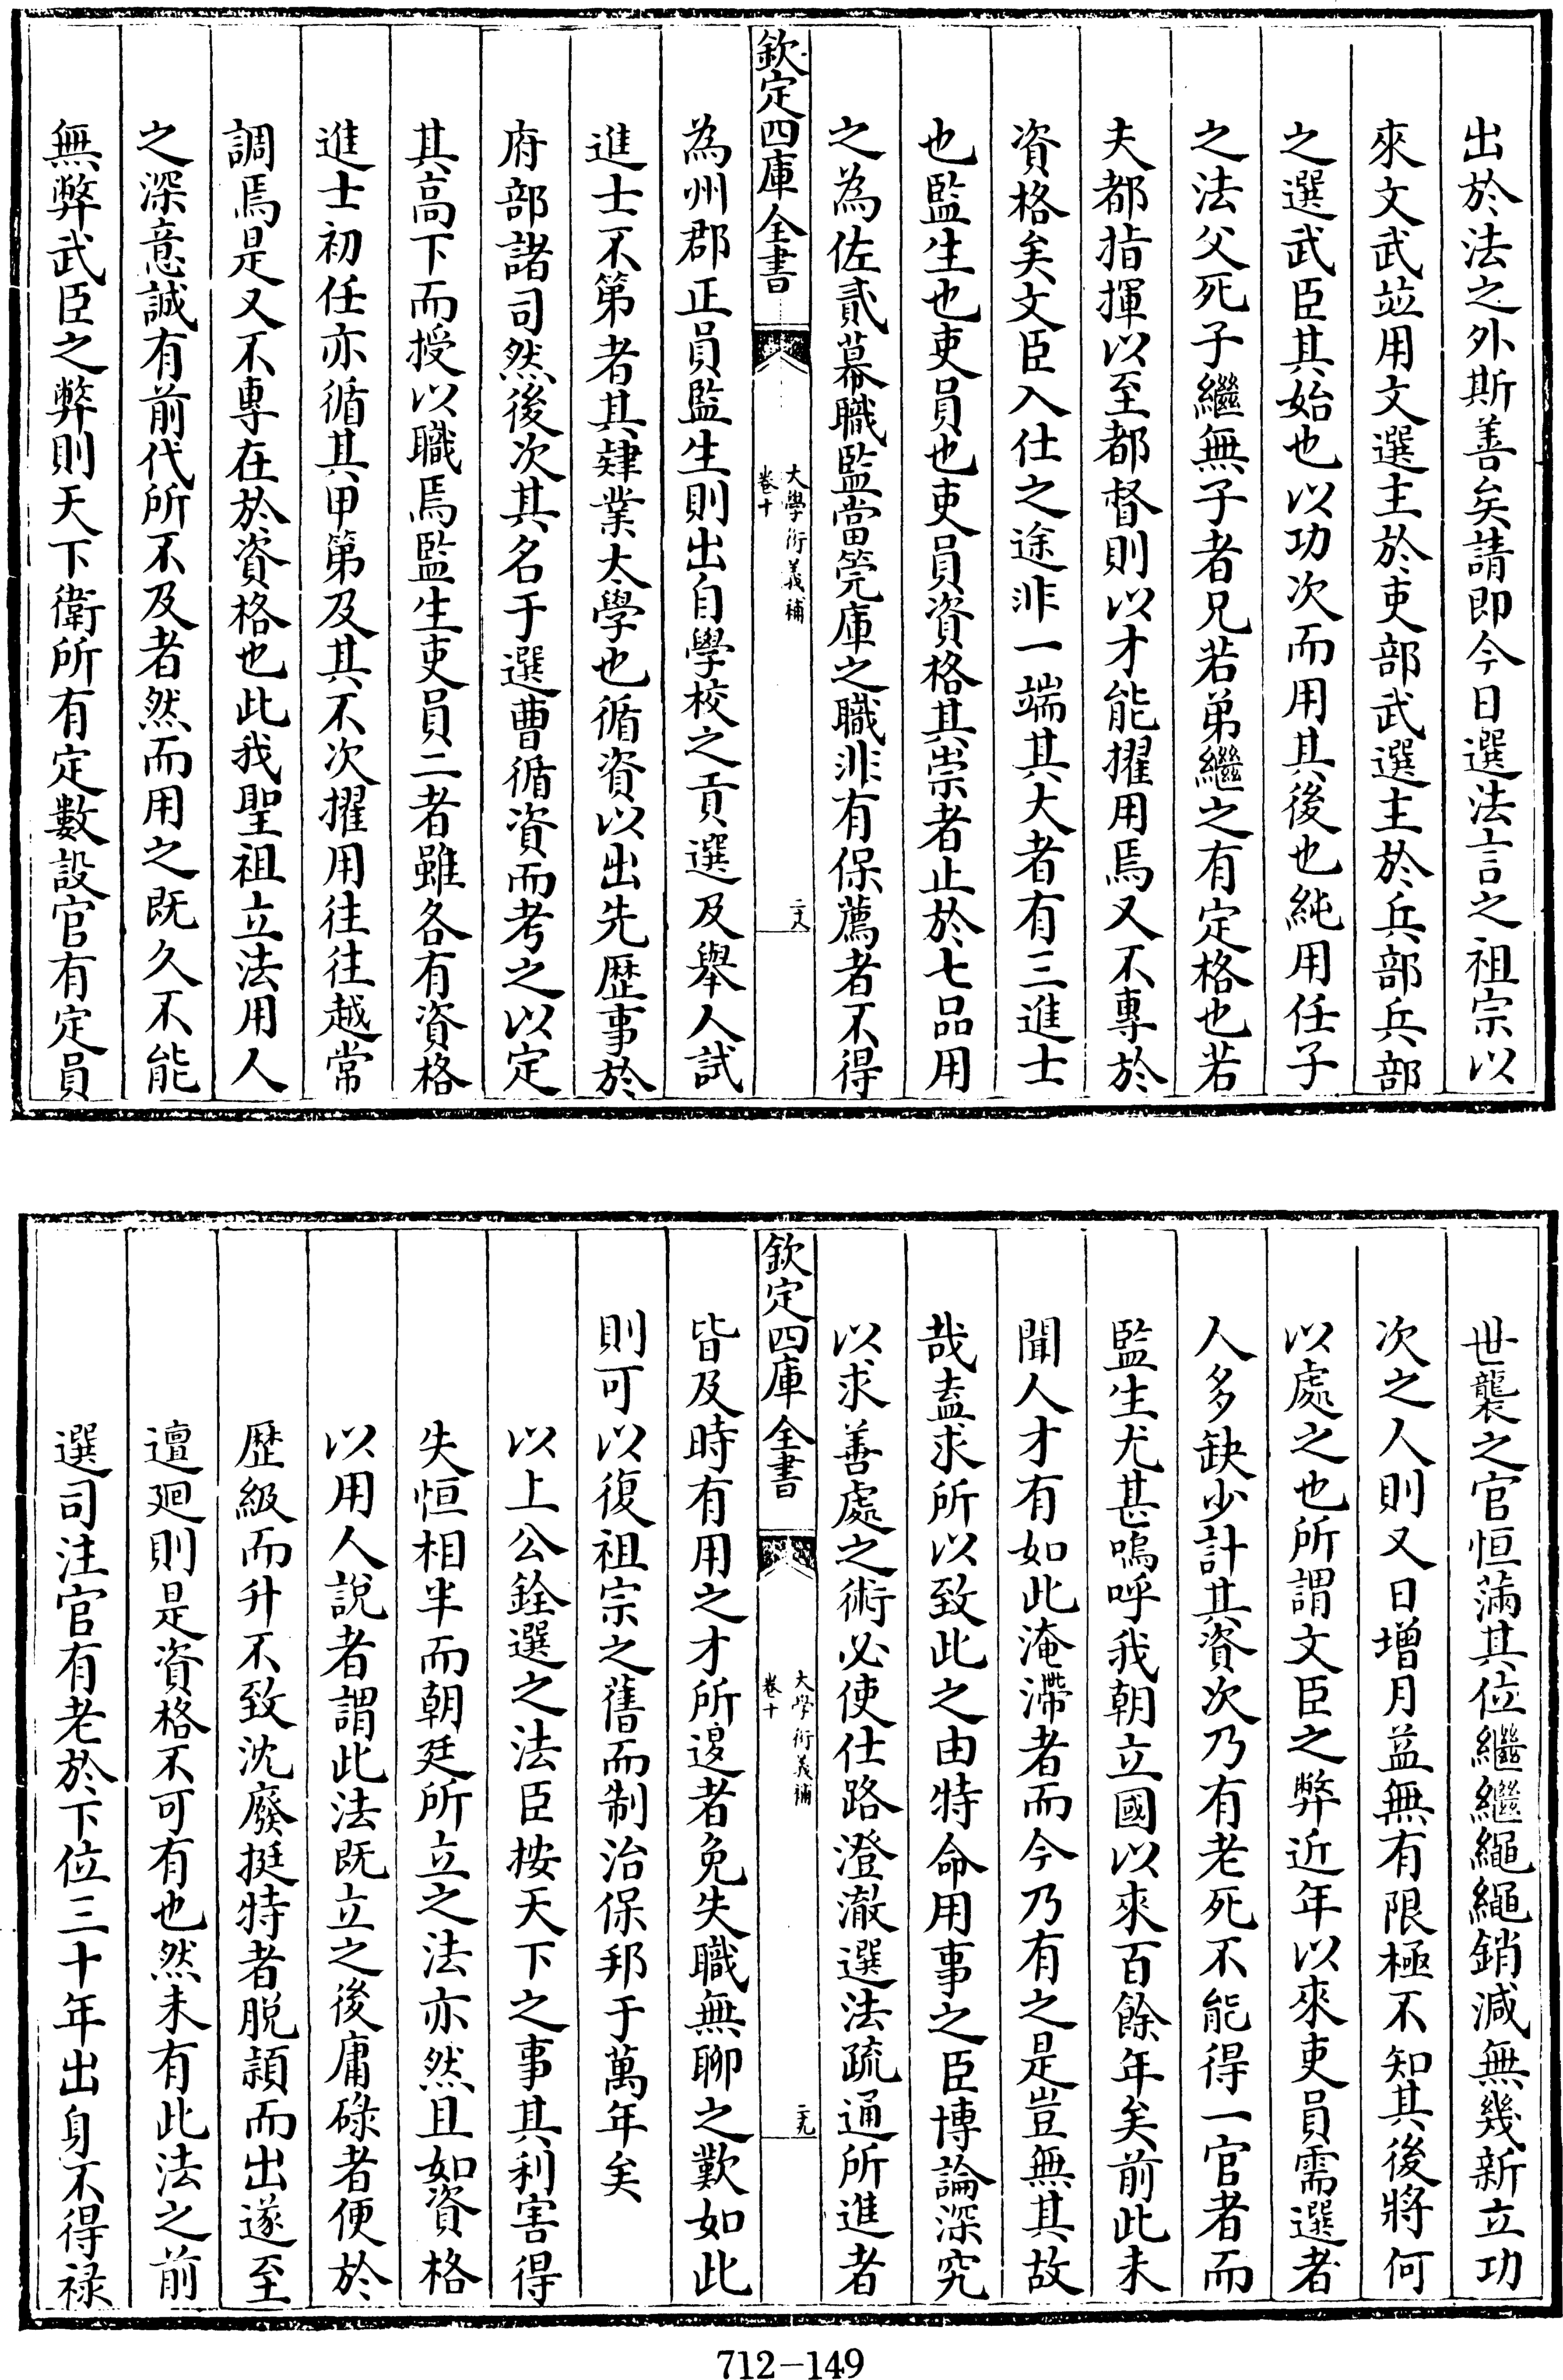 出於法之外斯善矣請即今日選法言之祖宗以
來文武並用文選主於吏部武選主於兵部兵部
之選武臣其始也以功次而用其後也純用任子
之法父死子繼無子者兄若弟繼之有定格也若
夫都指揮以至都督則以才能擢用焉又不專於
資格矣文臣入仕之途非一端其大者有三進士
也監生也吏員也吏員資格其崇者止於七品用
之為佐貳幕職監當筦庫之職非有保薦者不得
欽定四庫全書
大學衍義補
卷十
二八
為州郡正員監生則出自學校之貢選及舉人試
進士不第者其肄業大學也循資以出先歷事於
府部諸司然後次其名于選曹循資而考之以定
其高下而授以職焉監生吏員二者雖各有資格
進士初任亦循其甲第及其不次擢用往往越常
調焉是又不專在於資格也此我聖祖立法用人
之深意誠有前代所不及者然而用之既久不能
無弊武臣之弊則天下衛所有定數設官有定員
世襲之官恒滿其位繼繼繩繩銷減無幾新立功
次之人則又日增月益無有限極不知其後將何
以處之也所謂文臣之弊近年以來吏員需選者
人多缺少計其資次乃有老死不能得一官者而
監生尤甚嗚呼我朝立國以來百餘年矣前此未
聞人才有如此淹滯者而今乃有之是豈無其故
哉盍求所以致此之由特命用事之臣博論深究
以求善處之術必使仕路澄澈選法疏通所進者
欽定四庫全書
大學衍義補
卷十
二九
皆及時有用之才所退者免失職無聊之歎如此
則可以復祖宗之舊而制治保邦于萬年矣
以上公銓選之法臣按天下之事其利害得
失恒相半而朝廷所立之法亦然且如資格
以用人說者謂此法既立之後庸碌者便於
歷級而升不致沈廢挺特者脫頴而出遂至
邅廻則是資格不可有也然未有此法之前
選司注官有老於下位三十年出身不得祿
712-149